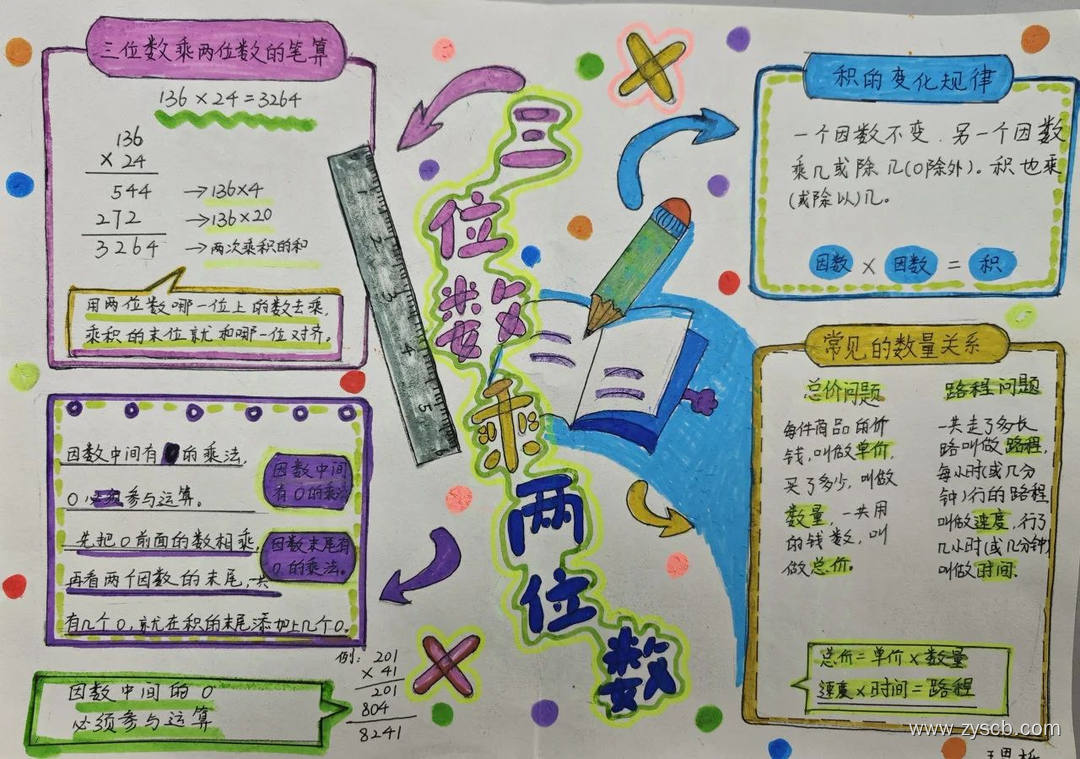 三位数乘两位数的笔算
136×24=3264
136
×24
544 →136×4
272 →136×20
3264 →两次乘积的和
用两位数哪一位上的数去乘,
乘积的末位就和哪一位对齐。
三位数乘两位数
积的变化规律
一个因数不变,另一个因数
乘几或除几(0除外)。积也乘
(或除以)几。
因数×因数=积
常见的数量关系
总价问题
每件商品的价
钱,叫做单价,
买了多少,叫做
数量,一共用
的钱数,叫
做总价。
路程问题
一共走了多长
路叫做路程,
每小时(或几分
钟)行的路程
叫做速度,行了
几小时(或几分钟)
叫做时间.
总价=单价×数量
速度×时间=路程
因数中间有 的乘法,
0 参与运算。
因数中间
有0的乘法
先把0前面的数相乘,
因数末尾有
0的乘法。
再看两个因数的末尾,共
有几个0,就在积的末尾添加上几个0。
因数中间的0
必须参与运算
例:201
×41
201
804
8241
www.zyscb.com